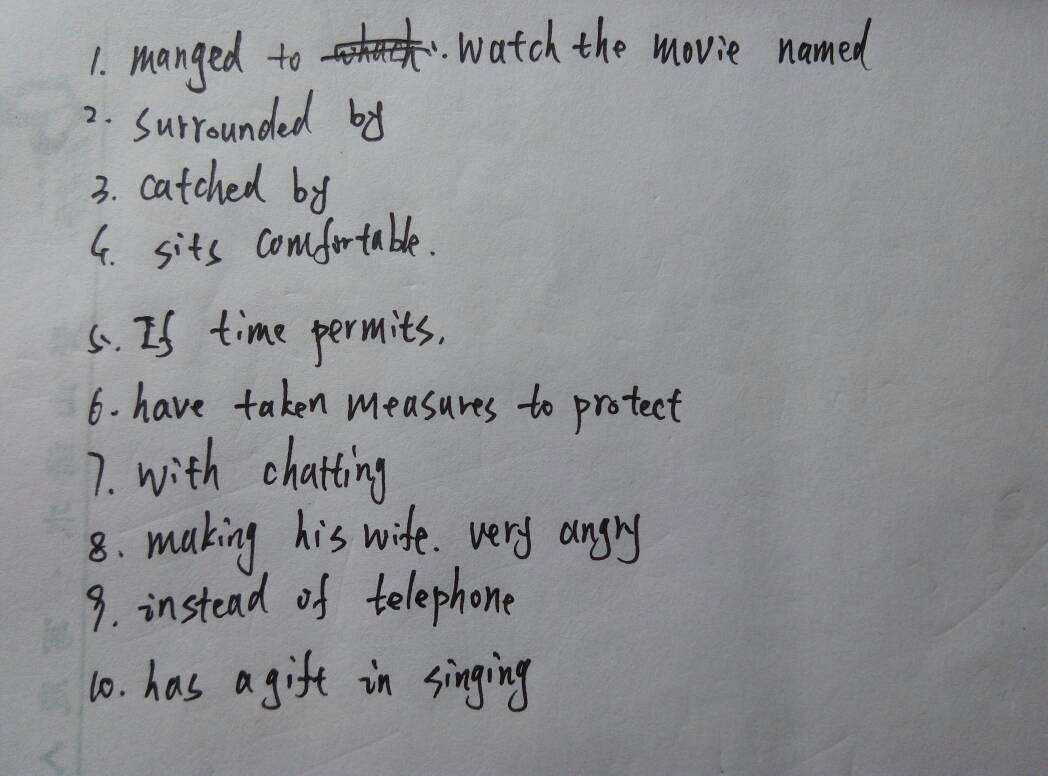 1. manged to watch the movie named
2. surrounded by
3. catched by
4. sits comfortable.
5. If time permits,
6. have taken measures to protect
7. with chatting
8. making his wife. very angry
9. instead of telephone
10. has a gift in singing